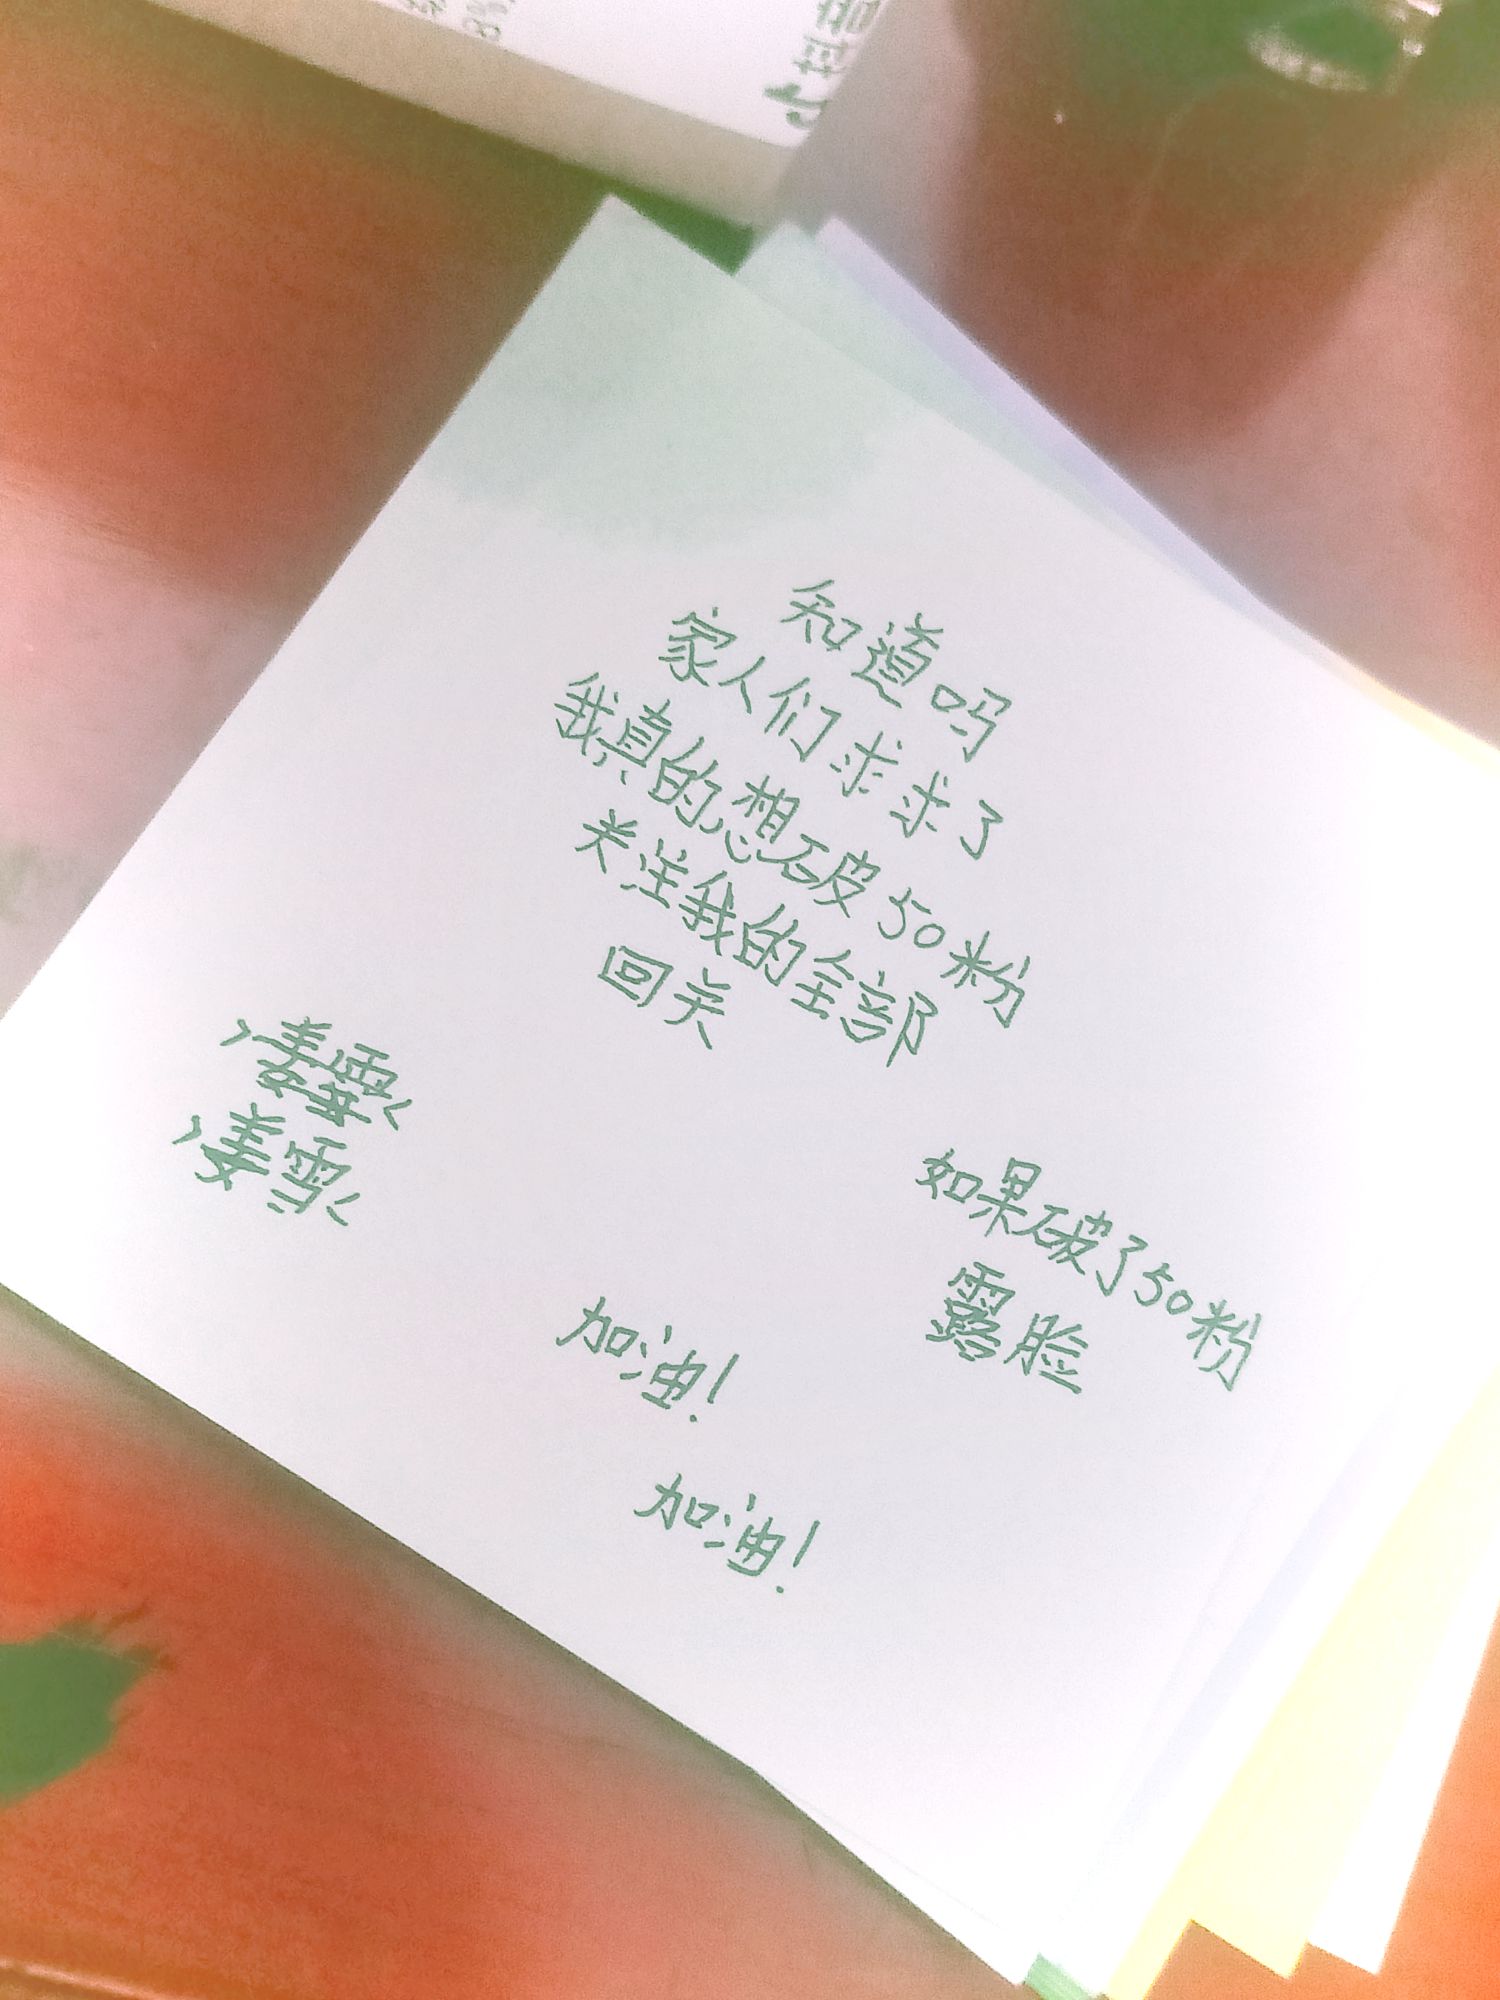 知道吗
家人们求求了
我真的想破50粉
关注我的全部
回关
姜雪
如果破了50粉
露脸
加油!
加油!